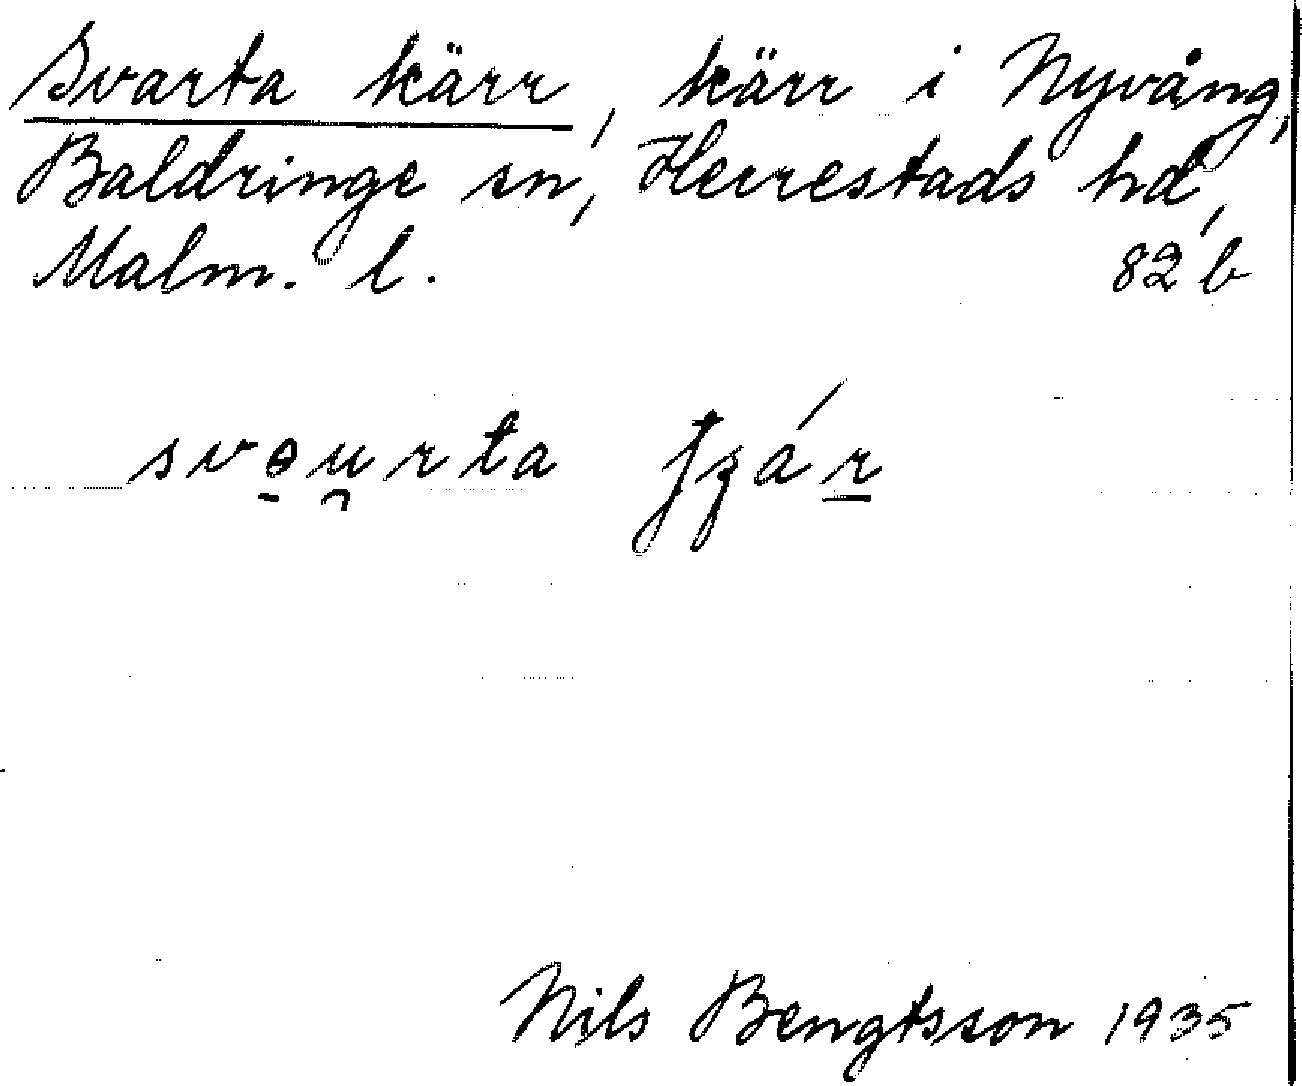 Svarta kärr, kärr i Nyvång,
Baldringe sn, Herrestads hd,
Malm. l. 82 b
svɵu̯rta
Nils Bengtsson 1935